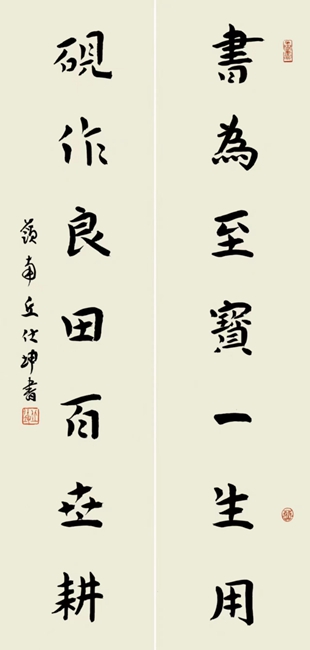 書為至寶一生用
硯作良田百世耕
嶺南丘仕坤書